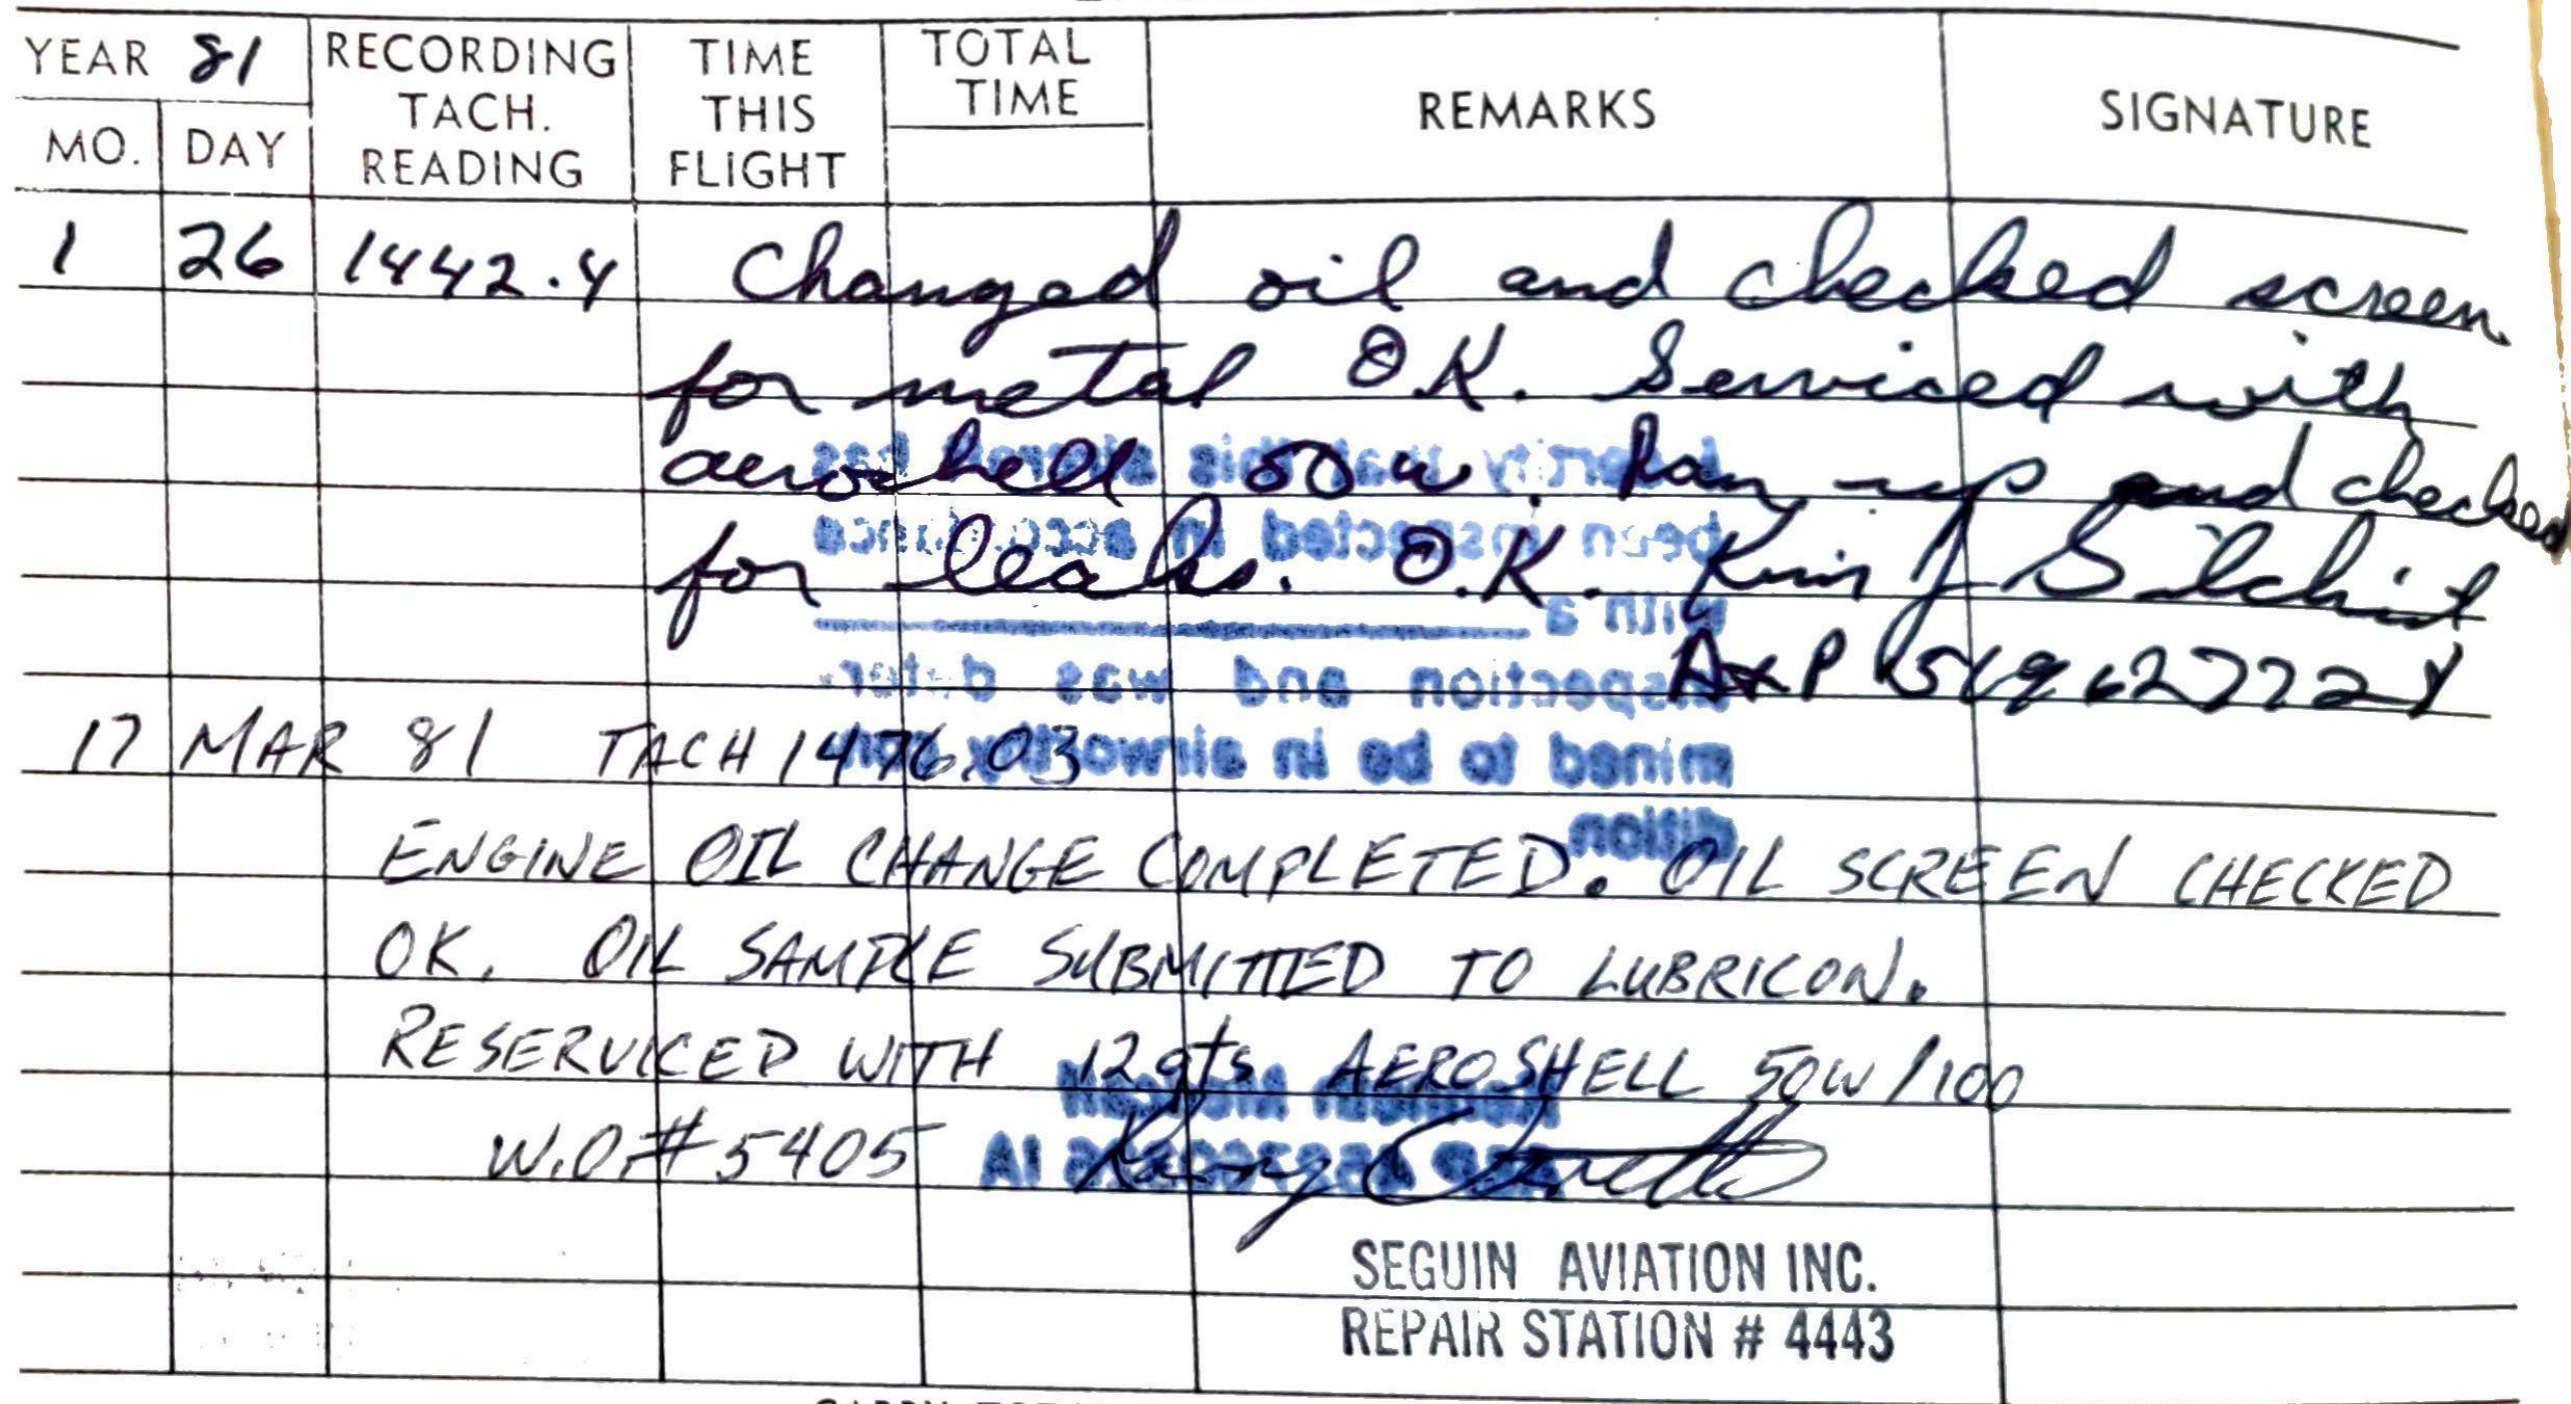 YEAR 81
MO. DAY
RECORDING TACH. READING
TIME THIS FLIGHT
TOTAL TIME
REMARKS
SIGNATURE
1 26 1442.4 Changed oil and checked screen
for metal O.K. Serviced with
aeroshell 50w. Ran up and checked
for leaks. O.K.
A&P
17 MAR 81 TACH 1476.03
ENGINE OIL CHANGE COMPLETED. OIL SCREEN CHECKED
OK. OIL SAMPLE SUBMITTED TO LUBRICON.
RESERVICED WITH 12 qts AEROSHELL 50W/100
W.O.# 5405
SEGUIN AVIATION INC.
REPAIR STATION # 4443